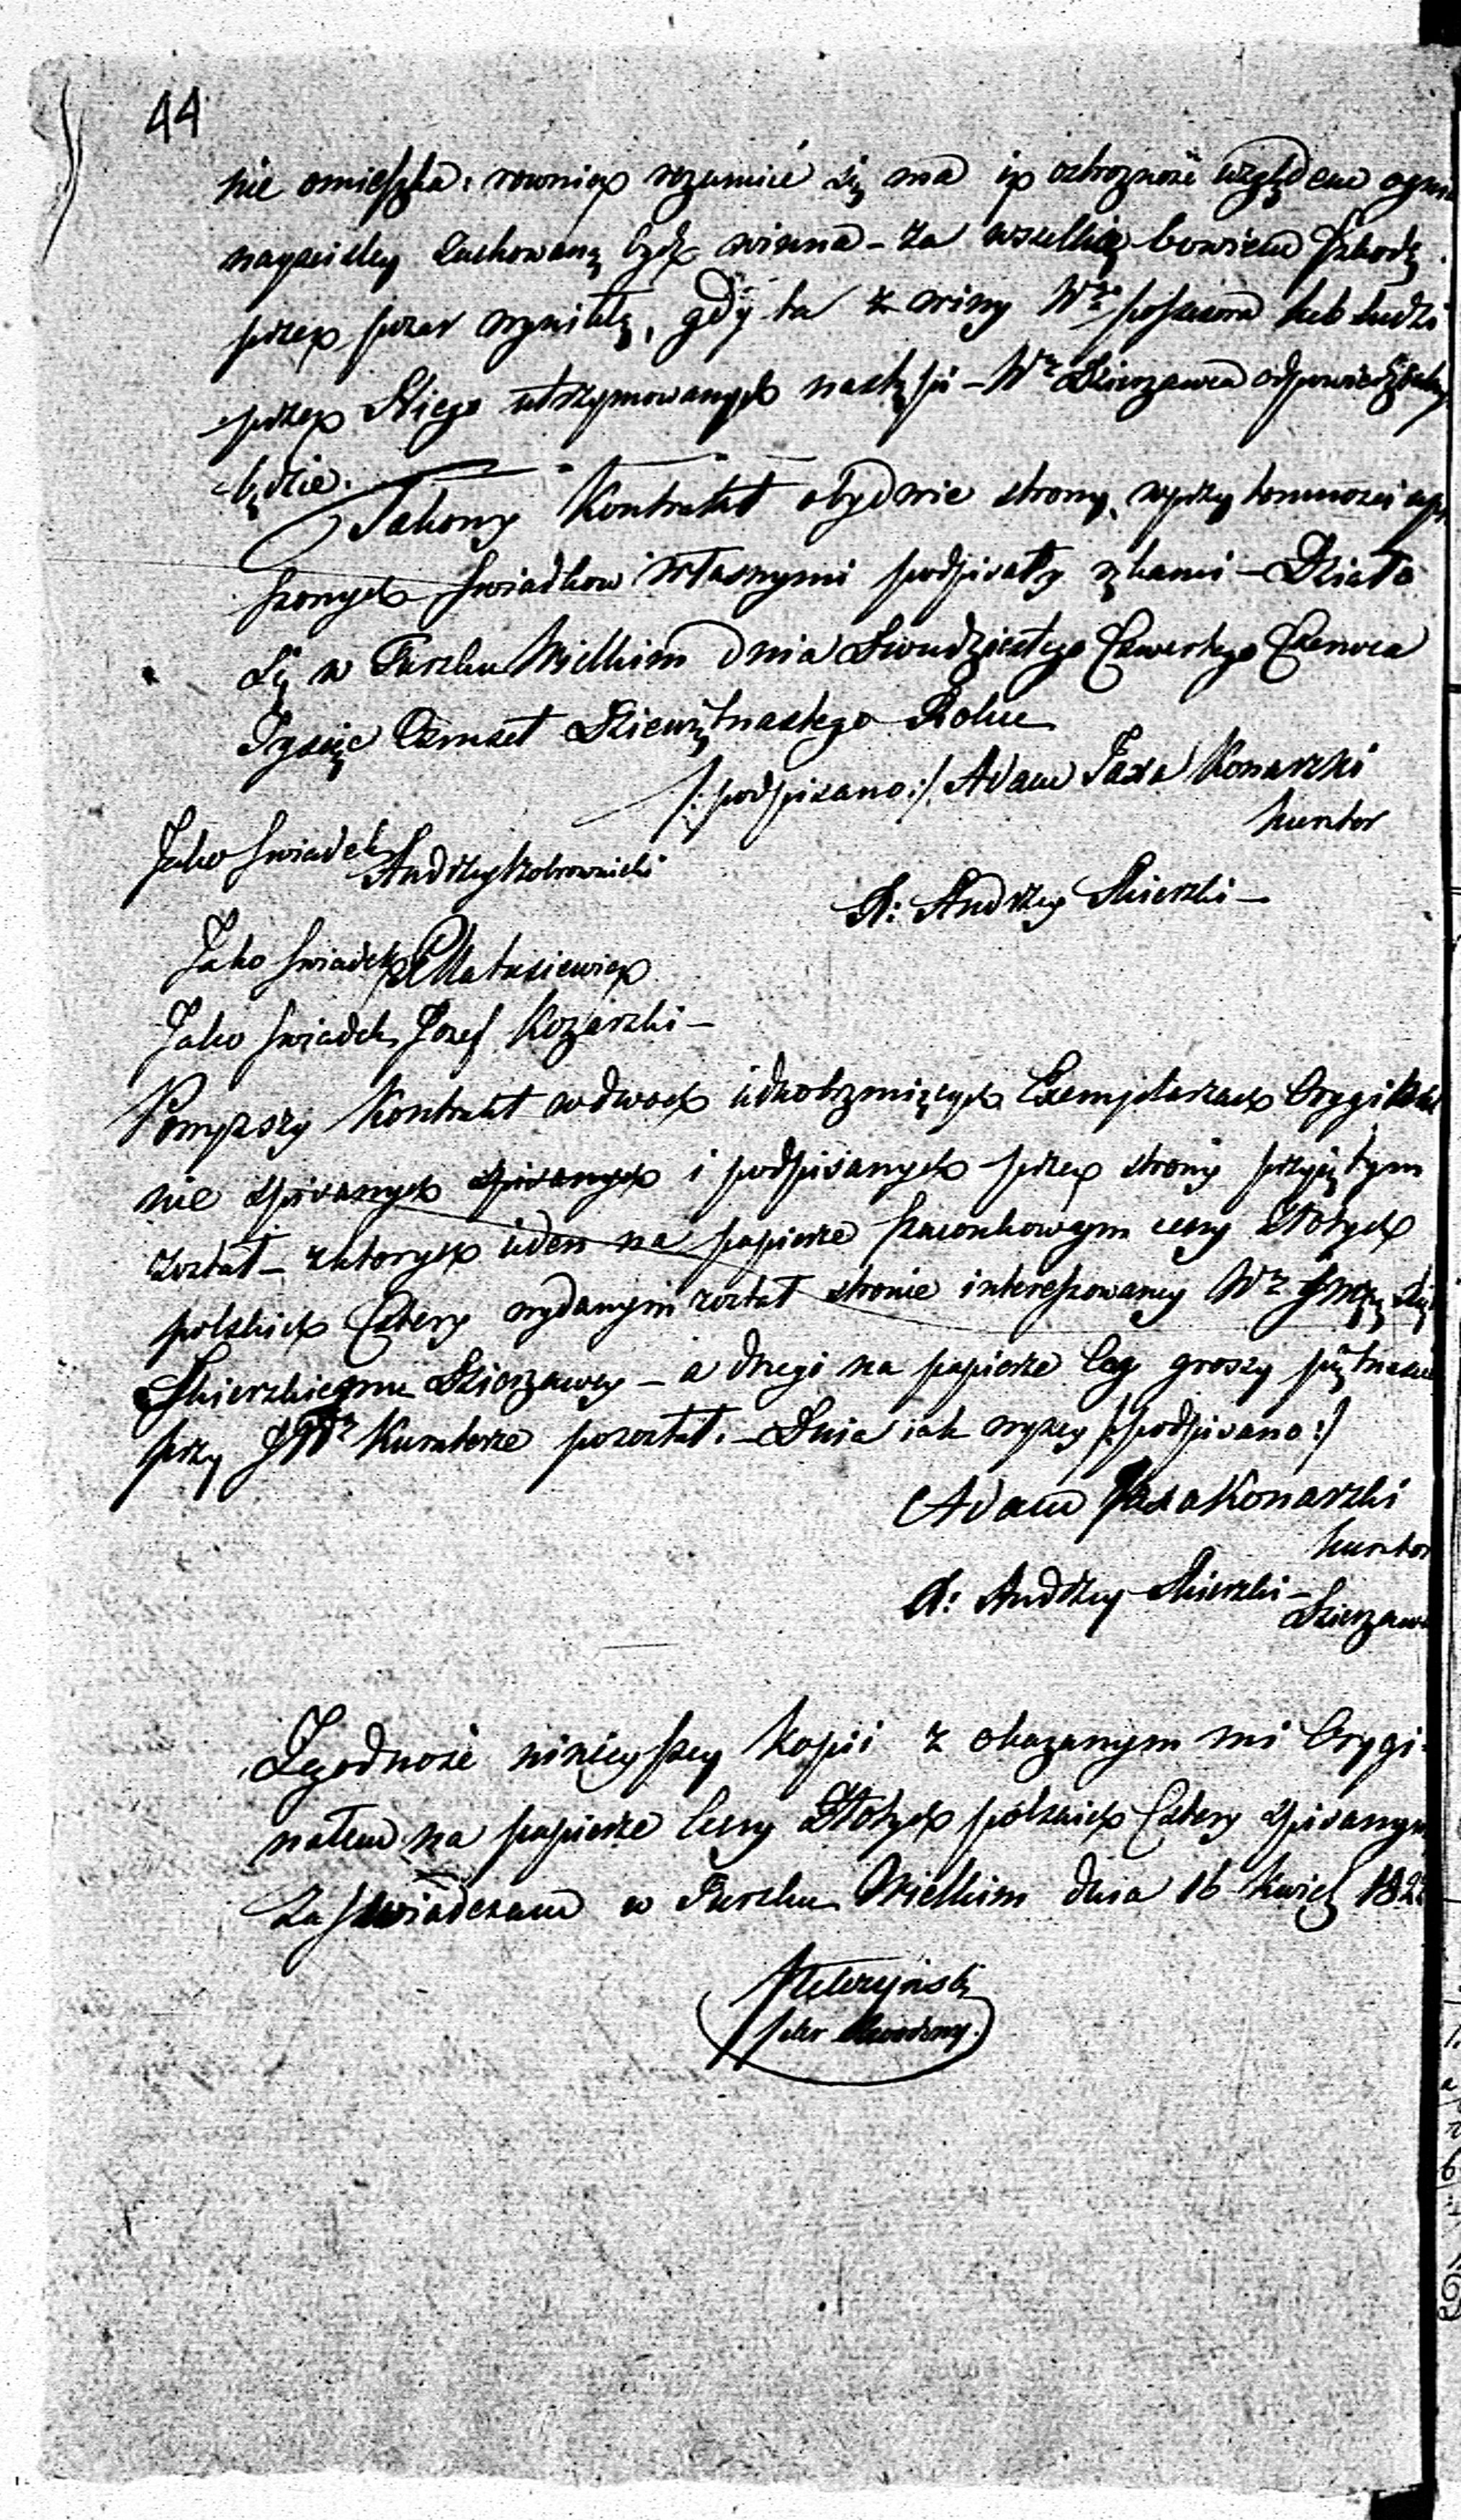 44
nie omieszka: rowniez rozumieć się ma iż ostrozność względem ognia
nayscisley zachowaną bydź winna – za wszelką bowiem szkodę
przez pozar wynikłą, gdy ta z winy Wgo possessora lub ludzi
przez Niego utrzymowanych nastąpi – Wny Dzierzawca odpowiedzialny
będzie.
Takowy Kontrakt obydwie strony, w przytomności upro
szonych swiadkow własnymi podpisały rękami – Działo
Się w Turzku Wielkim Dnia Dwudziestego Czwartego Czerwca
Tysiąc Osmset Dziewiętnastego Roku
/: podpisano :/ Adam Jaxa Konarski
Kurator
Jako swiadek Andrzey
A: Andrzey Skierski –
Jako swiadek Matusiewicz
Jako swiadek Jozef Kozarski –
Powyzszy Kontrakt w dwoch iednobrzmiących Exemplarzach Orygial
nie spisanych spisanych i podpisanych przez strony przyiętym
został – z ktorych ieden na papierze szacunkowym ceny Złotych
polskich Cztery wydanym został stronie interessowaney
Skierskiemu Dzierzawcy – a drugi na papierze ceny groszy piętnaście
przy JW Kuratorze pozostał. – Dnia iak wyzey /: podpisano :/
Adam Jaxa Konarski
Kurator
A: Andrzey Skierski –
Dzierzawca
Zgodność ninieyszey Kopii z okazanym mi Orygi-
nałem na papierze Ceny Złotych polskich Cztery spisanym
Zaswiadczam w Turzku Wielkim dnia 16 Kwiet 182